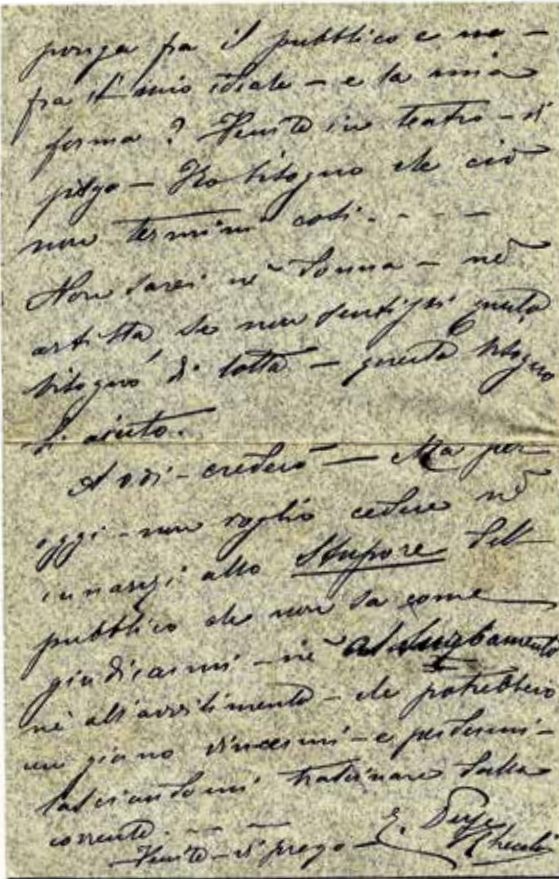 ponga fra il pubblico e me –
fra il mio ideale – e la mia
forma ? Venite in teatro – vi
prego – Ho bisogno che ciò
non termini così . - - –
Non sarei nè donna – nè
artista se non sentissi questo
bisogno di lotta – questo bisogno
di aiuto.
A voi – crederò – Ma per
oggi – non voglio cedere nè
innanzi allo Stupore del
pubblico che non sa come
giudicarmi – nè
nè all'avvilimento – che potrebbero
un giorno vincermi – e perdermi –
lasciandomi trascinare dalla
corrente. – –
Venite – vi prego – E. Duse
Checchi